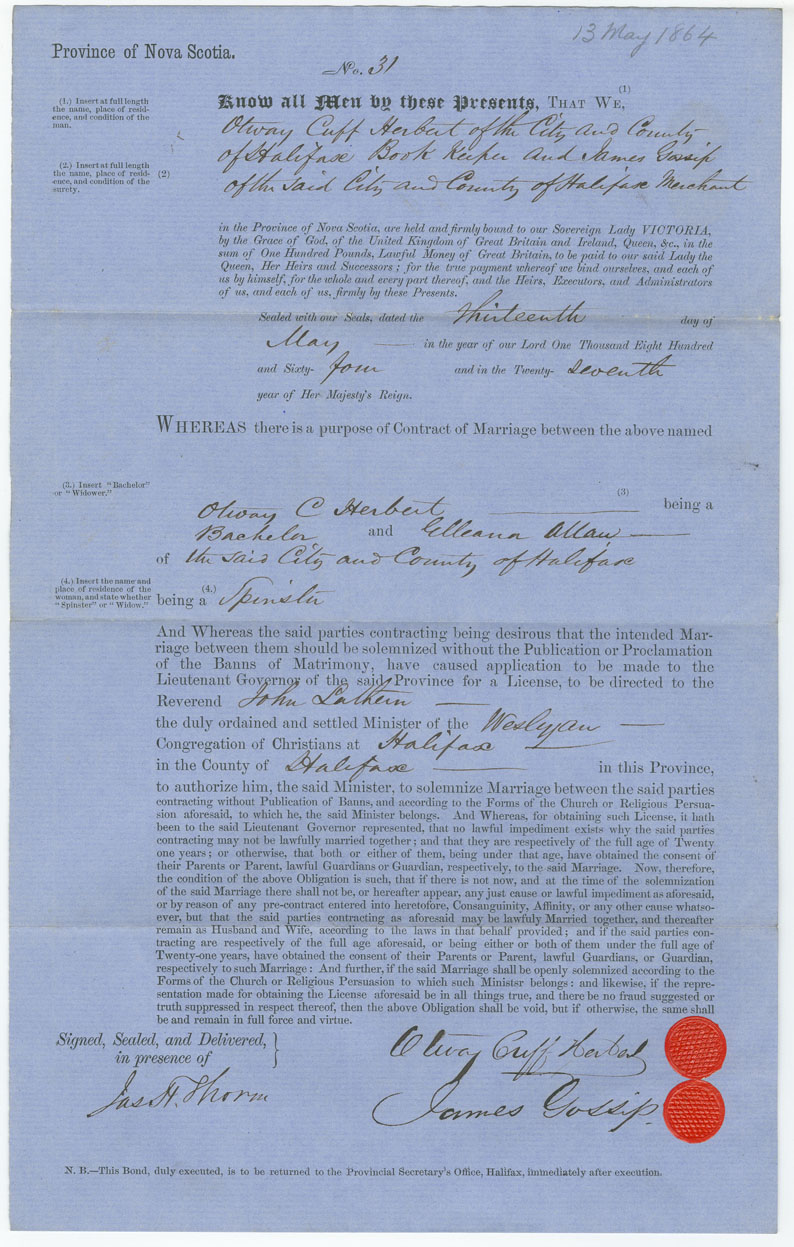 13 May 1864
Province of Nova Scotia.
No. 31
(1.) Insert at full length
the name, place of resid-
ence, and condition of the
man.
Know all Men by these Presents, THAT WE, (1)
Otway Cuff Herbert of the City and County
of Halifax Book Keeper and James Gossip
(2.) Insert at full length
the name, place of resid-
ence, and condition of the
surety.
(2) of the said City and County of Halifax Merchant
in the Province of Nova Scotia, are held and firmly bound to our Sovereign Lady VICTORIA,
by the Grace of God, of the United Kingdom of Great Britain and Ireland, Queen, &c., in the
sum of One Hundred Pounds, Lawful Money of Great Britain, to be paid to our said Lady the
Queen, Her Heirs and Successors; for the true payment whereof we bind ourselves, and each of
us by himself, for the whole and every part thereof, and the Heirs, Executors, and Administrators
of us, and each of us, firmly by these Presents.
Sealed with our Seals, dated the thirteenth day of
May — in the year of our Lord One Thousand Eight Hundred
and Sixty- four and in the Twenty- seventh
year of Her Majesty's Reign.
WHEREAS there is a purpose of Contract of Marriage between the above named
(3.) Insert "Bachelor"
or "Widower."
Otway C Herbert — (3) being a
Bachelor and Elleana Allan —
of the said City and County of Halifax
(4.) Insert the name and
place of residence of the
woman, and state whether
"Spinster" or "Widow."
being a (4.) Spinster
And Whereas the said parties contracting being desirous that the intended Mar-
riage between them should be solemnized without the Publication or Proclamation
of the Banns of Matrimony, have caused application to be made to the
Lieutenant Governor of the said Province for a License, to be directed to the
Reverend John Lathern —
the duly ordained and settled Minister of the Wesleyan —
Congregation of Christians at Halifax —
in the County of Halifax — in this Province,
to authorize him, the said Minister, to solemnize Marriage between the said parties
contracting without Publication of Banns, and according to the Forms of the Church or Religious Persua-
sion aforesaid, to which he, the said Minister belongs. And Whereas, for obtaining such License, it hath
been to the said Lieutenant Governor represented, that no lawful impediment exists why the said parties
contracting may not be lawfully married together; and that they are respectively of the full age of Twenty
one years; or otherwise, that both or either of them, being under that age, have obtained the consent of
their Parents or Parent, lawful Guardians or Guardian, respectively, to the said Marriage. Now, therefore,
the condition of the above Obligation is such, that if there is not now, and at the time of the solemnization
of the said Marriage there shall not be, or hereafter appear, any just cause or lawful impediment as aforesaid,
or by reason of any pre-contract entered into heretofore, Consanguinity, Affinity, or any other cause whatso-
ever, but that the said parties contracting as aforesaid may be lawfuly Married together, and thereafter
remain as Husband and Wife, according to the laws in that behalf provided; and if the said parties con-
tracting are respectively of the full age aforesaid, or being either or both of them under the full age of
Twenty-one years, have obtained the consent of their Parents or Parent, lawful Guardians, or Guardian,
respectively to such Marriage: And further, if the said Marriage shall be openly solemnized according to the
Forms of the Church or Religious Persuasion to which such Ministsr belongs: and likewise, if the repre-
sentation made for obtaining the License aforesaid be in all things true, and there be no fraud suggested or
truth suppressed in respect thereof, then the above Obligation shall be void, but if otherwise, the same shall
be and remain in full force and virtue.
Signed, Sealed, and Delivered,
in presence of
Otway Cuff Herbert
Jas H. Thorne
James Gossip.
N. B.—This Bond, duly executed, is to be returned to the Provincial Secretary's Office, Halifax, immediately after execution.